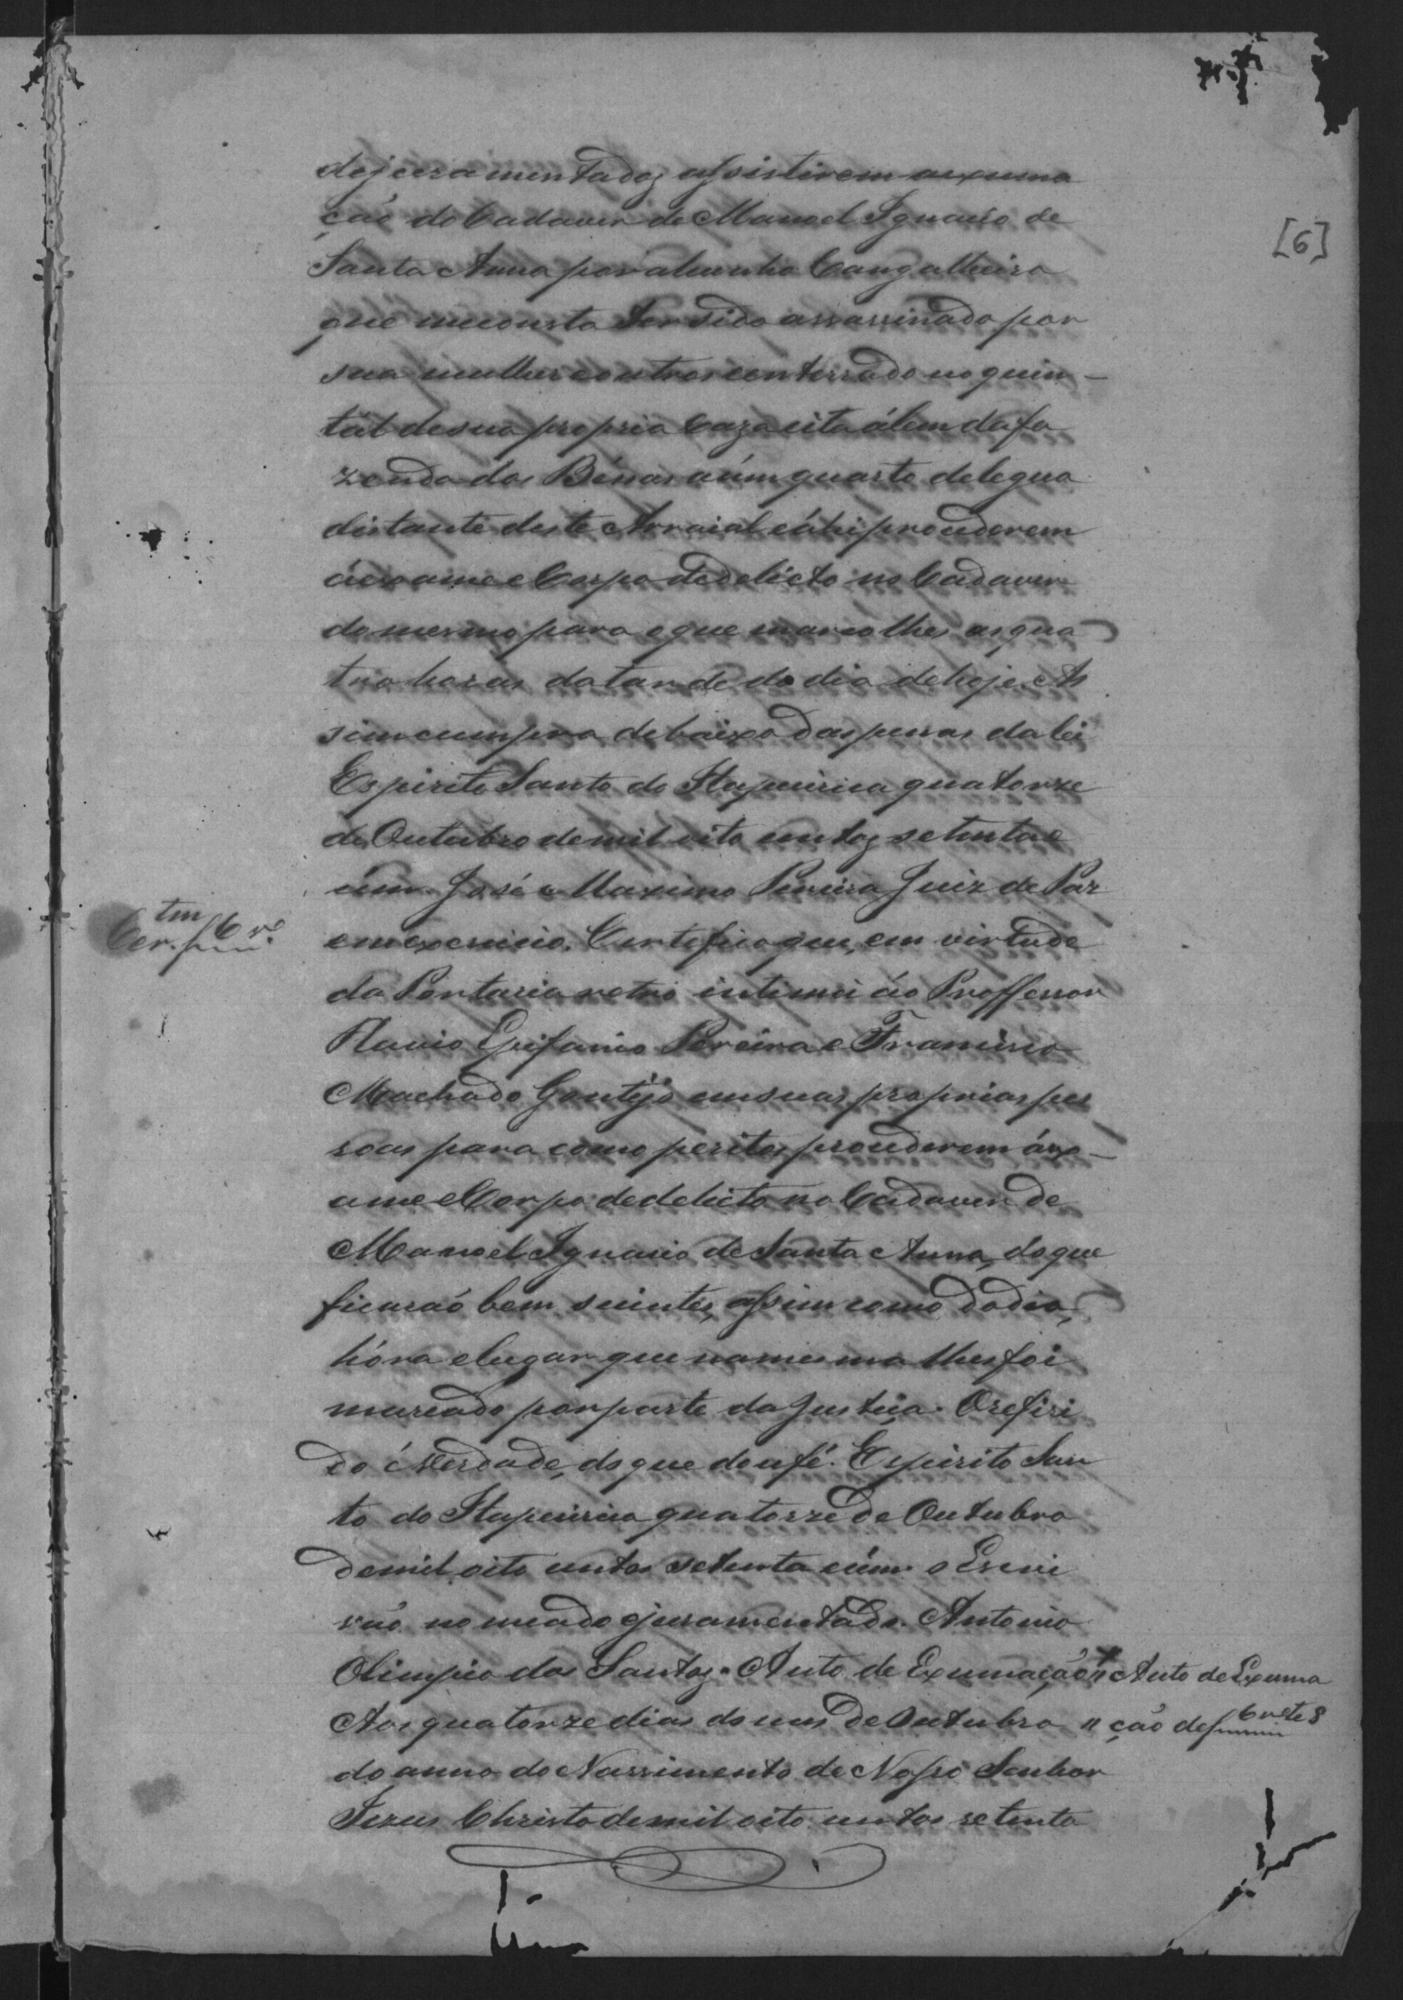 dejuramentados assistirem a exuma
ção do Cadaver de Manoel Ignacio de
Santa Anna por alcunha Cangalheiro
que me consta ter sido assassinado por
sua mulher e outros e enterrado no quin-
tal de sua propria Caza cita álem da fa
zenda dos a úm quarto de legua
distante deste Arraial e áhi procederem
áexame e Corpo de delicto no Cadaver
do mesmo para o que marco lhes as qua
tro horas da tarde do dia de hoje As
sim cumpra debaixo das penas da lei
Espirito Santo do Itapecirica quatorze
de Outubro de mil oito centos setenta e
úm. José Maximo Pereira Juiz de Paz
em exercicio. Certefico que, em virtude
da Portaria retro intimei áo Proffessor
Flavio Epifanio Pereira e Francisco
Machado Gontijo em suas proprias pes
soas para como peritos procederem áex-
ame e Corpo de delicto no Cadaver de
Manoel Ignacio de Santa Anna, do que
ficarão bem scientes, assim como do dia,
hóra e lugar que na mesma lhes foi
marcado por parte da Justiça. O refiri
do é Verdade, do que dou fé. Espirito San
to do Itapecirica quatorze de Outubro
de mil oito centos setenta e úm. o Escri
vão nomeado e juramentado. Antonio
Olimpio dos Santos. Auto de Exumação
Aos quatorze dias do mes de Outubro
do anno do Nascimento de Nosso Senhor
Jezus Christo de mil oito centos setenta
[6]
Cer.tm f 6 vo
" Auto de Exuma
" ção de f 6 vo te 8